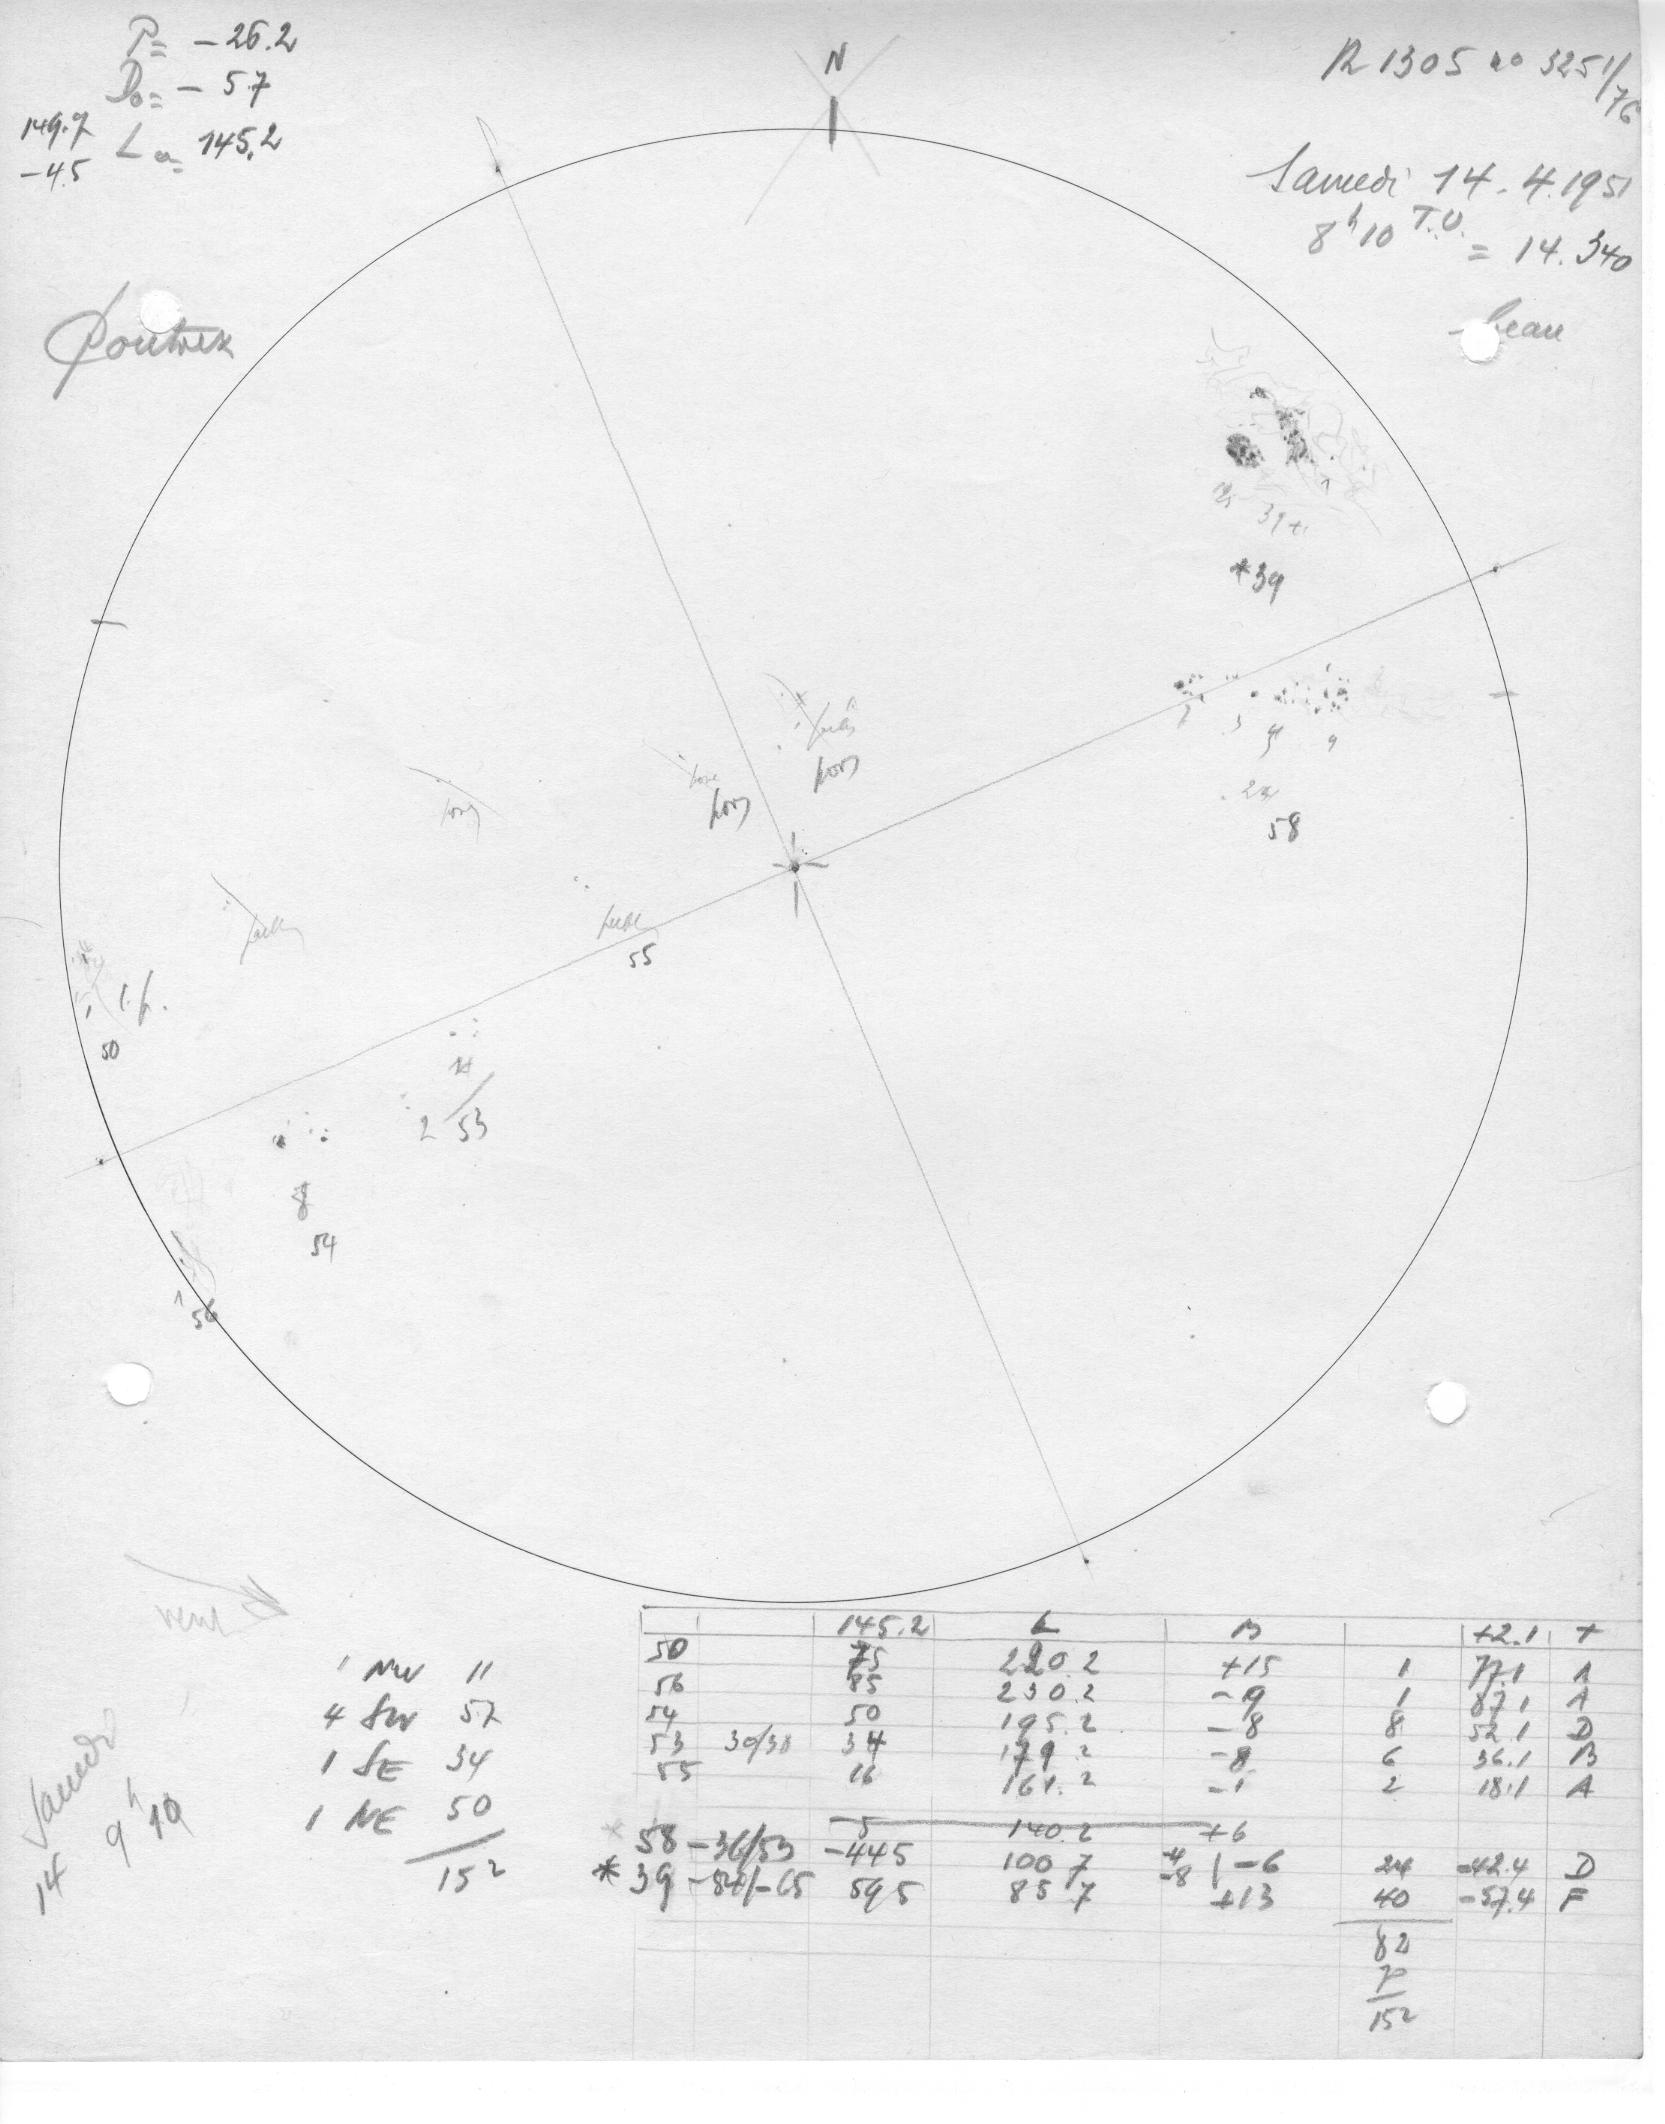 P= -26.2
Do= -5.7
149.7
-4.5
Lo= 145.2
N
R 1305 no 3251/76
Samedi 14.4.1951
8h10 T.U. = 14.340
beau
39+1
*39
pores
pores
pore
pores
pores
24
58
55
1 p.
50
14
2
53
8
54
1
56
Samedi
14 9h10
1 NW 11
4 SW 57
1 SE 34
1 NE 50
152
145.2 L B +2.1 T
50 75 220.2 +15 1 77.1 A
56 85 230.2 -9 1 87.1 A
54 50 195.2 -8 8 52.1 D
53 30/38 34 179.2 -8 6 36.1 B
55 16 161.2 -1 2 18.1 A
5 140.2 +6
58 -36/53 -445 100 7 -4 -8 -6 24 -42.4 D
*39 -54/-65 595 85 7 +13 40 -57.4 F
82
70
152